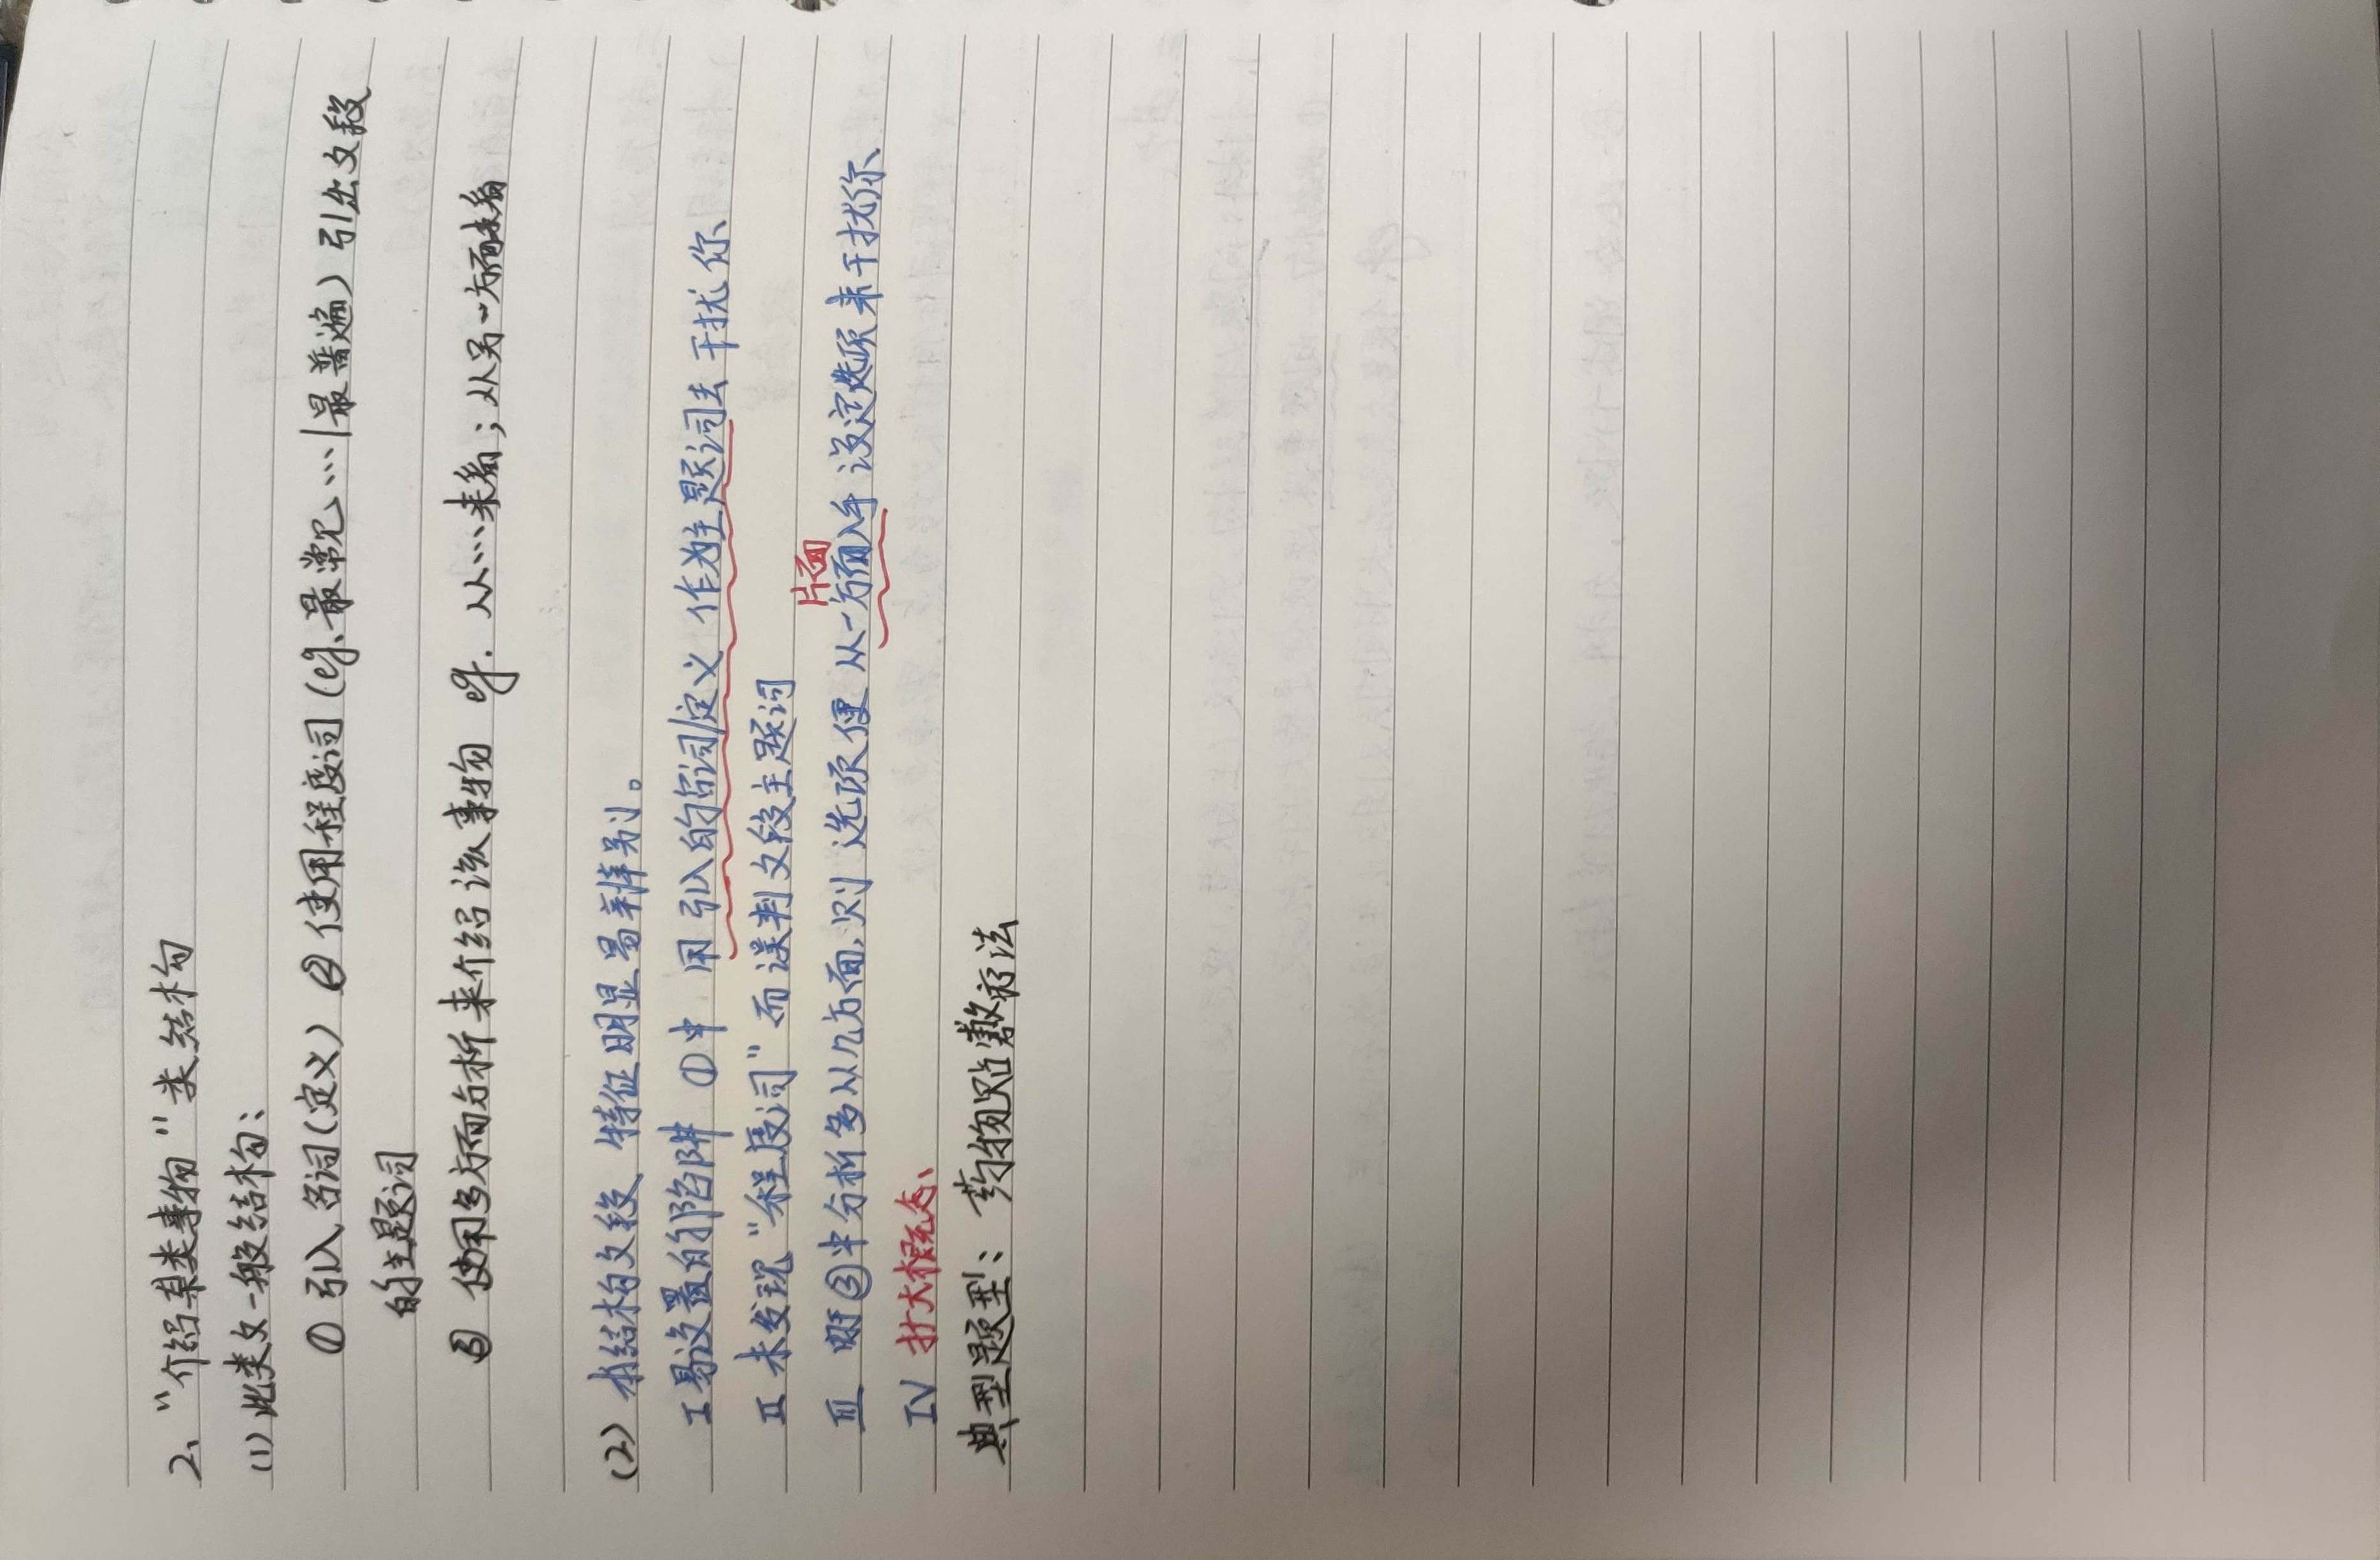 2、“介绍某类事物”类结构
(1) 此类文一般结构：
① 引入名词(定义) ② 使用程度词 (eg、最常见…|最普遍) 引出文段
的主题词
③ 使用多方面分析来介绍该事物 eg. 从…来看；从另一方面来看
(2) 本结构文段 特征明显易辨别。
I 易设置的陷阱 ①中 用引入的名词/定义 作为主题词去干扰你、
II 未发现“程度词”而误判文段主题词
片面
III 由于③中分析多从几方面,则 选项便 从一方面入手 设定选项来干扰你、
IV 扩大概念、
典型题型：药物贴敷疗法